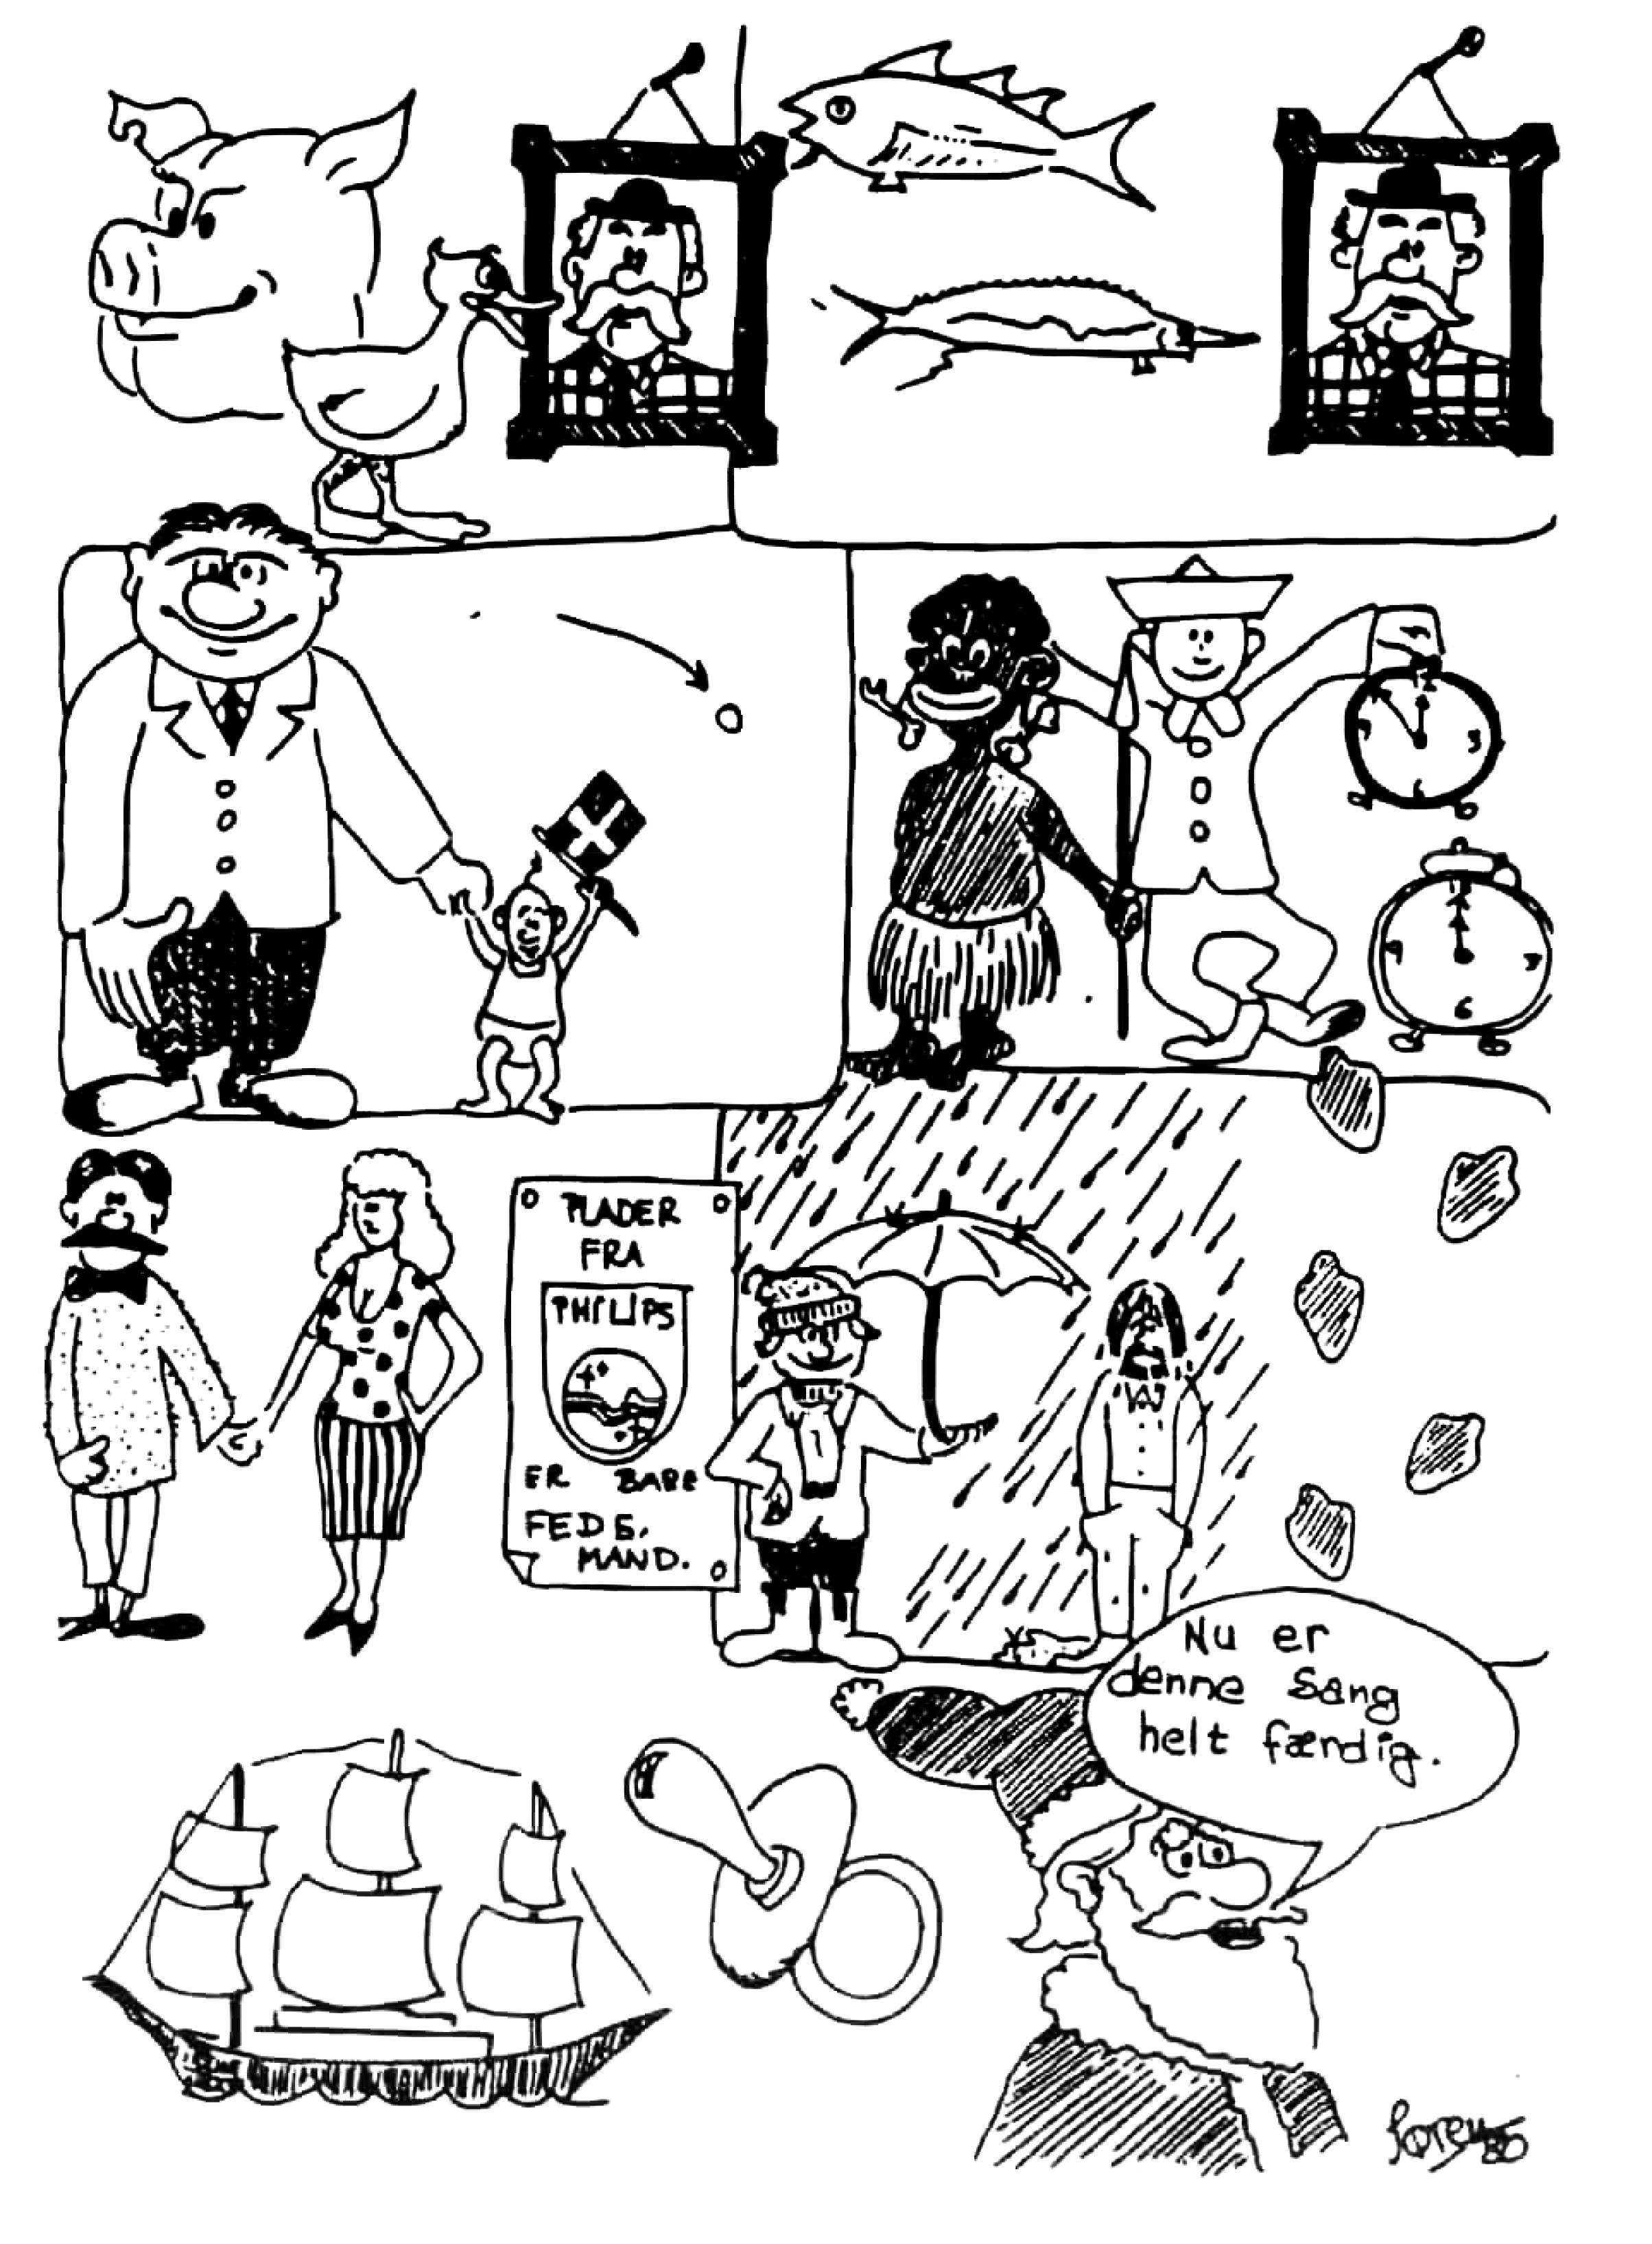 PLADER
FRA
PHILIPS
ER BARE
FEDE,
MAND.
Nu er
denne Sang
helt færdig.
12
9 3
6